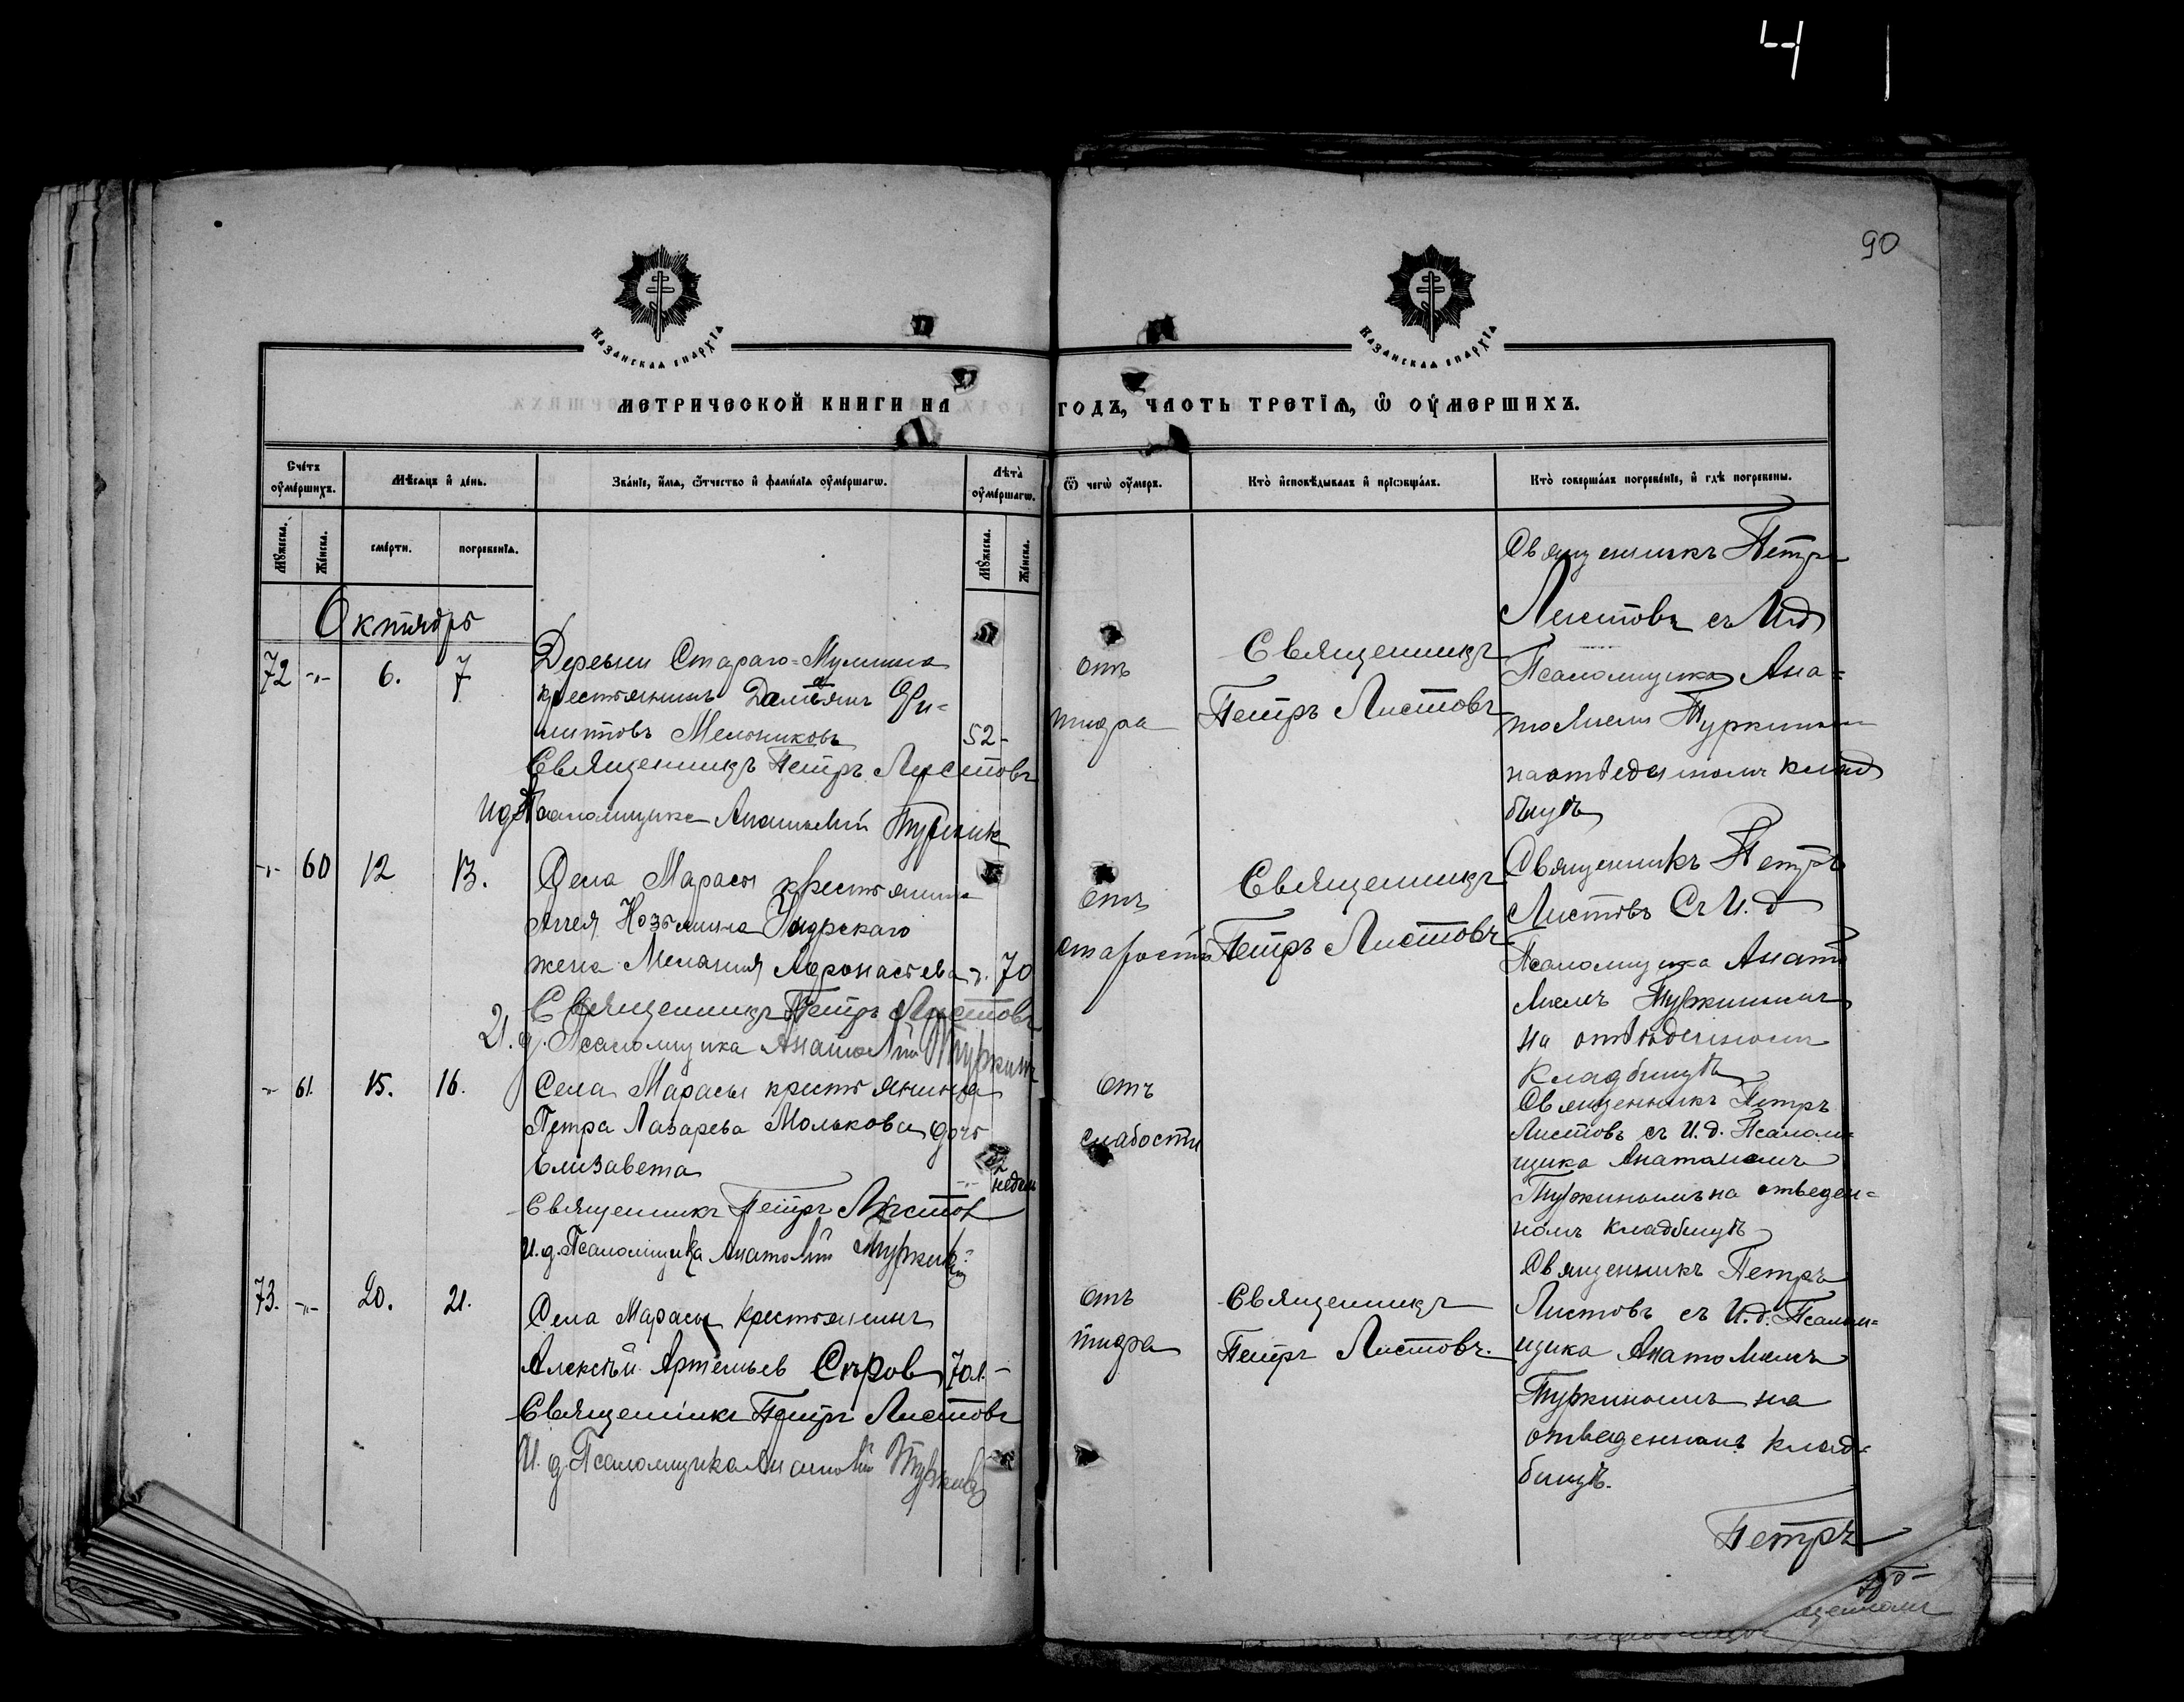 4
90
КАЗАНСКАЯ ЕПАРХІЯ
КАЗАНСКАЯ ЕПАРХІЯ
МЕТРИЧЕСКОЙ КНИГИ НА ГОДЪ, ЧАСТЬ ТРЕТІЯ, Ѡ ОУМЕРШИХЪ.
Счетъ оумершихъ.
Мѣсяцъ и день.
Званіе, имя, отчество и фамилія оумершагѡ.
Лѣта оумершагѡ.
Ѿ чегѡ оумеръ.
Кто исповѣдывалъ и пріѡбщалъ.
Кто совершалъ погребеніе, и гдѣ погребены.
Мужеска.
Женска.
смерти.
погребенія.
Мужеска.
Женска.
Октябрь
72 -"- 6. 7
Деревни Стараго=Мулина
крестьянинъ Даміянъ Фи-
липовъ Мельниковъ
52 -
Священникъ Петръ Листовъ
И д Псаломщика Анатолій Туркин
отъ
тифа
Священникъ
Петръ Листовъ
Священникъ Петръ
Листовъ съ И д
Псаломщика Ана=
толіемъ Туркинымъ
на отведенномъ клад
бищѣ
-"- 60 12 13.
Села Марасы крестьянина
Аггея Козьмина
жена Меланія Афонасьева -"- 70
Священникъ Петръ Листовъ
И. д. Псаломщика Анатолій Туркинъ
отъ
старости
Священникъ
Петръ Листовъ
Священникъ Петръ
Листовъ Съ И. д
Псаломщика Анато
ліемъ Туркинымъ
на отведенномъ
кладбищѣ
-"- 61. 15. 16.
Села Марасы крестьянина
Петра Лазарева Молькова дочь
Елизавета
-"- 2 недели
Священникъ Петръ Листов
И. д. Псаломщика Анатолій Туркин
отъ
слабости
Священникъ Петръ
Листовъ съ И. д. Псалом=
щика Анатоліемъ
Туркинымъ на отведен=
номъ кладбищѣ
73. -"- 20. 21.
Села Марасы крестьянинъ
Алексѣй Артемьев Сѣров 70 л. -
Священникъ Петръ Листовъ
И. д Псаломщика Анатолій Туркин
отъ
тифа
Священникъ
Петръ Листовъ.
Священникъ Петръ
Листовъ съ И. д. Псалом=
щика Анатоліемъ
Туркинымъ на
отведенномъ клад=
бищѣ.
Петръ